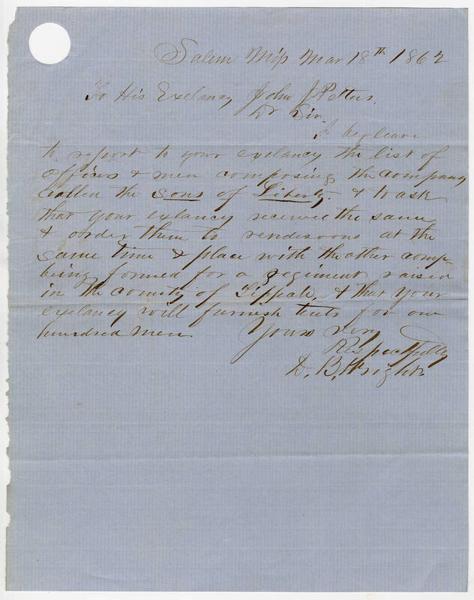 Salem Miss Mar 18th 1862
To His Exelancy John J Pettus.
Dr Sir.
I beg leave
to report to your exelancy the list of
officers & men composing the company
called the Sons of Liberty. & to ask
that your exelancy receive the same
& order them to rendesvous at the
same time & place with the other comps
being formed for a regiment raised
in the county of Tippah, & that your
exelancy will furnish tents for one
hundred men Yours very
Respectfully
D. B. Wright